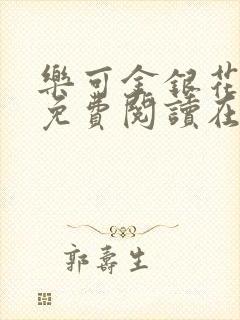 樂可金銀花
免費閱讀在
郭壽生